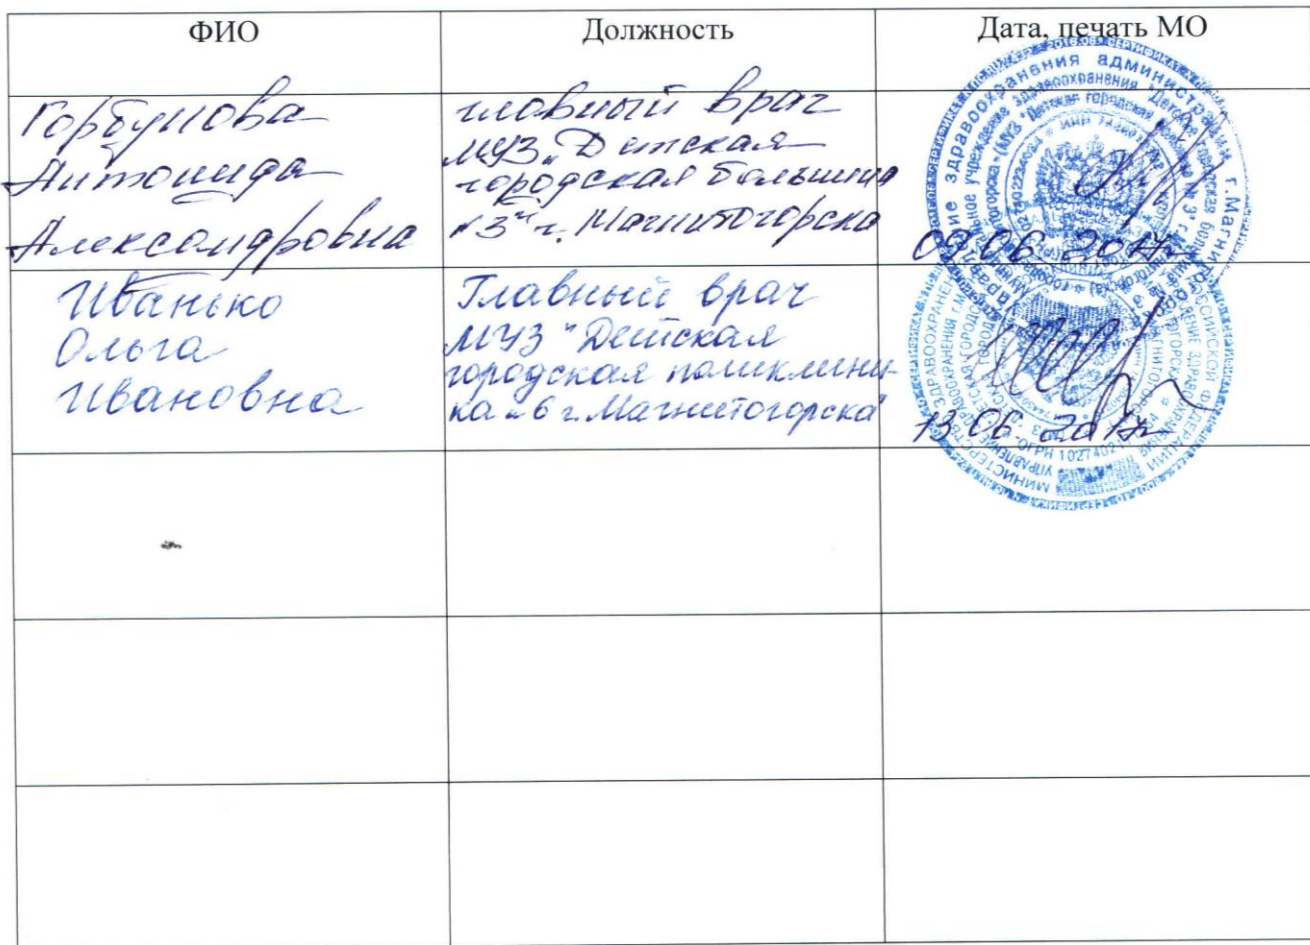 ФИО Должность Дата, печать МО
Горбунова
Антонида
Александровна
главный врач
МУЗ "Детская
городская больница
№3" г. Магнитогорска
09.06.2017г
Иванько
Ольга
Ивановна
Главный врач
МУЗ "Детская
городская поликлини-
ка №6 г. Магнитогорска"
13.06.2017г